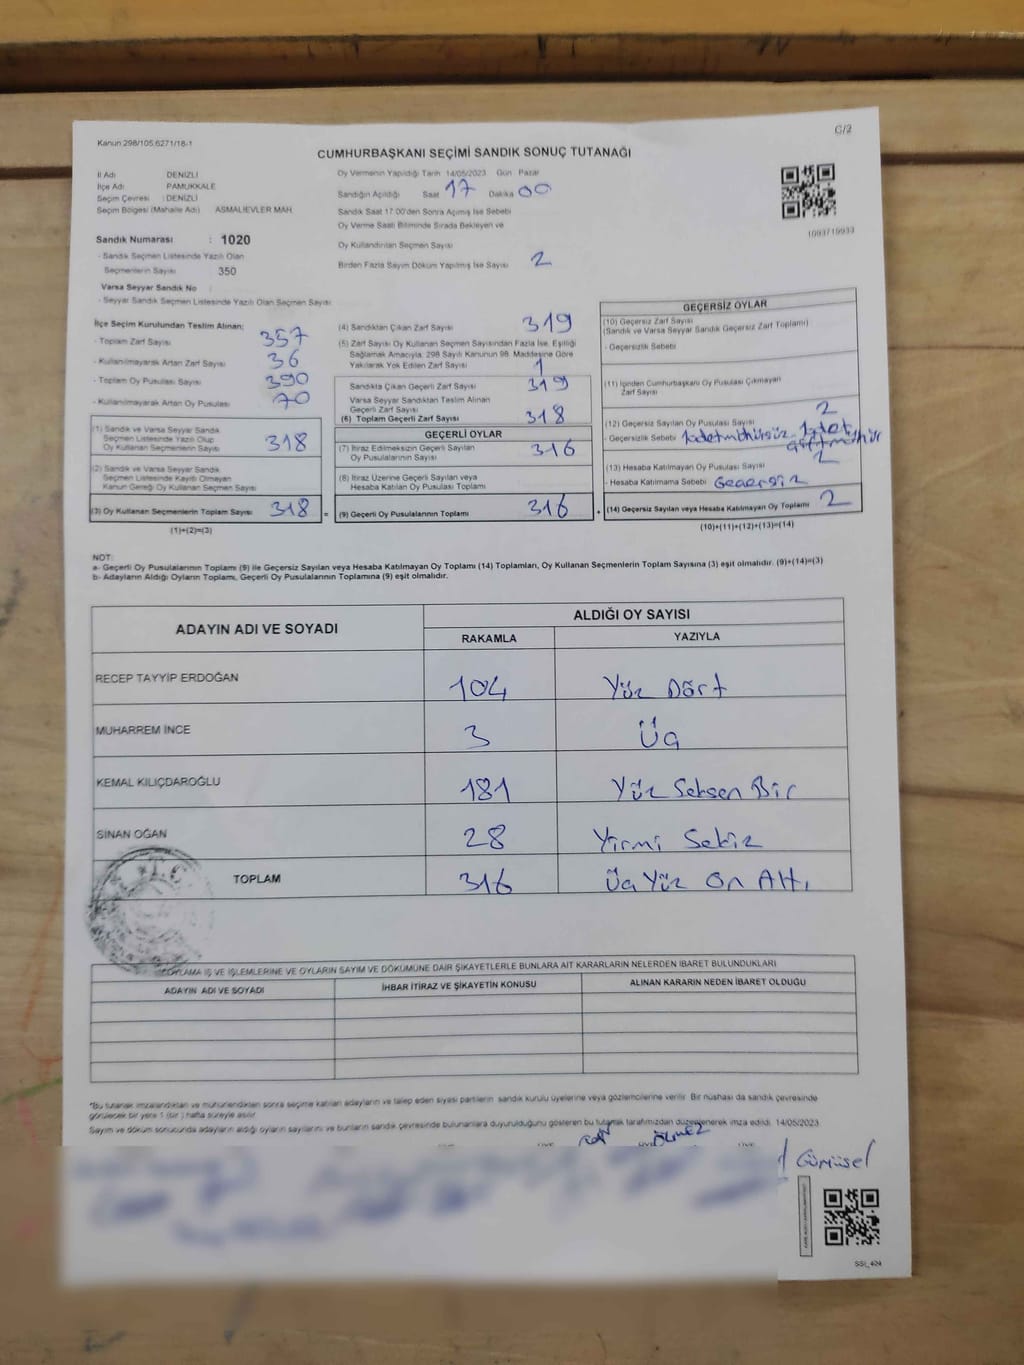 G/2
Kanun 298/105,6271/18-1
CUMHURBAŞKANI SEÇİMİ SANDIK SONUÇ TUTANAĞI
İl Adı DENİZLİ
İlçe Adı PAMUKKALE
Seçim Çevresi : DENİZLİ
Seçim Bölgesi (Mahalle Adı) ASMALIEVLER MAH.
Sandık Numarası : 1020
- Sandık Seçmen Listesinde Yazılı Olan
Seçmenlerin Sayısı 350
Varsa Seyyar Sandık No
- Seyyar Sandık Seçmen Listesinde Yazılı Olan Seçmen Sayısı
Oy Vermenin Yapıldığı Tarih 14/05/2023 Gün Pazar
Sandığın Açıldığı Saat 17 Dakika 00
Sandık Saat 17.00'den Sonra Açılmış İse Sebebi
Oy Verme Saati Bitiminde Sırada Bekleyen ve
Oy Kullandırılan Seçmen Sayısı
Birden Fazla Sayım Döküm Yapılmış İse Sayısı 2
1093719933
İlçe Seçim Kurulundan Teslim Alınan;
- Toplam Zarf Sayısı 357
- Kullanılmayarak Artan Zarf Sayısı 36
- Toplam Oy Pusulası Sayısı 390
- Kullanılmayarak Artan Oy Pusulası 70
(1) Sandık ve Varsa Seyyar Sandık
Seçmen Listesinde Yazılı Olup
Oy Kullanan Seçmenlerin Sayısı 318
(2) Sandık ve Varsa Seyyar Sandık
Seçmen Listesinde Kayıtlı Olmayan
Kanun Gereği Oy Kullanan Seçmen Sayısı
(3) Oy Kullanan Seçmenlerin Toplam Sayısı 318 =
(1)+(2)=(3)
(4) Sandıktan Çıkan Zarf Sayısı 319
(5) Zarf Sayısı Oy Kullanan Seçmen Sayısından Fazla İse, Eşitliği
Sağlamak Amacıyla, 298 Sayılı Kanunun 98. Maddesine Göre
Yakılarak Yok Edilen Zarf Sayısı 1
Sandıkta Çıkan Geçerli Zarf Sayısı 319
Varsa Seyyar Sandıktan Teslim Alınan
Geçerli Zarf Sayısı
(6) Toplam Geçerli Zarf Sayısı 318
GEÇERLİ OYLAR
(7) İtiraz Edilmeksizin Geçerli Sayılan
Oy Pusulalarının Sayısı 316
(8) İtiraz Üzerine Geçerli Sayılan veya
Hesaba Katılan Oy Pusulası Toplamı
(9) Geçerli Oy Pusulalarının Toplamı 316 +
GEÇERSİZ OYLAR
(10) Geçersiz Zarf Sayısı
(Sandık ve Varsa Seyyar Sandık Geçersiz Zarf Toplamı)
- Geçersizlik Sebebi
(11) İçinden Cumhurbaşkanı Oy Pusulası Çıkmayan
Zarf Sayısı
(12) Geçersiz Sayılan Oy Pusulası Sayısı 2
- Geçersizlik Sebebi 1adet mühürsüz 1adet
çift mühür
(13) Hesaba Katılmayan Oy Pusulası Sayısı 2
- Hesaba Katılmama Sebebi Geçersiz
(14) Geçersiz Sayılan veya Hesaba Katılmayan Oy Toplamı 2
(10)+(11)+(12)+(13)=(14)
NOT:
a- Geçerli Oy Pusulalarının Toplamı (9) ile Geçersiz Sayılan veya Hesaba Katılmayan Oy Toplamı (14) Toplamları, Oy Kullanan Seçmenlerin Toplam Sayısına (3) eşit olmalıdır. (9)+(14)=(3)
b- Adayların Aldığı Oyların Toplamı, Geçerli Oy Pusulalarının Toplamına (9) eşit olmalıdır.
ADAYIN ADI VE SOYADI ALDIĞI OY SAYISI
RAKAMLA YAZIYLA
RECEP TAYYİP ERDOĞAN 104 Yüz Dört
MUHARREM İNCE 3 Üç
KEMAL KILIÇDAROĞLU 181 Yüz Seksen Bir
SİNAN OĞAN 28 Yirmi Sekiz
TOPLAM 316 Üç Yüz On Altı
T.C.
OYLAMA İŞ VE İŞLEMLERİNE VE OYLARIN SAYIM VE DÖKÜMÜNE DAİR ŞİKAYETLERLE BUNLARA AİT KARARLARIN NELERDEN İBARET BULUNDUKLARI
ADAYIN ADI VE SOYADI İHBAR İTİRAZ VE ŞİKAYETİN KONUSU ALINAN KARARIN NEDEN İBARET OLDUĞU
*Bu tutanak imzalandıktan ve mühürlendikten sonra seçime katılan adayların ve talep eden siyasi partilerin sandık kurulu üyelerine veya gözlemcilerine verilir. Bir nüshası da sandık çevresinde
görülecek bir yere 1 (bir ) hafta süreyle asılır.
Sayım ve döküm sonucunda adayların aldığı oyların sayılarını ve bunların sandık çevresinde bulunanlara duyurulduğunu gösteren bu tutanak tarafımızdan düzenlenerek imza edildi. 14/05/2023
Ölmez
Gümüşel
SSİ_404